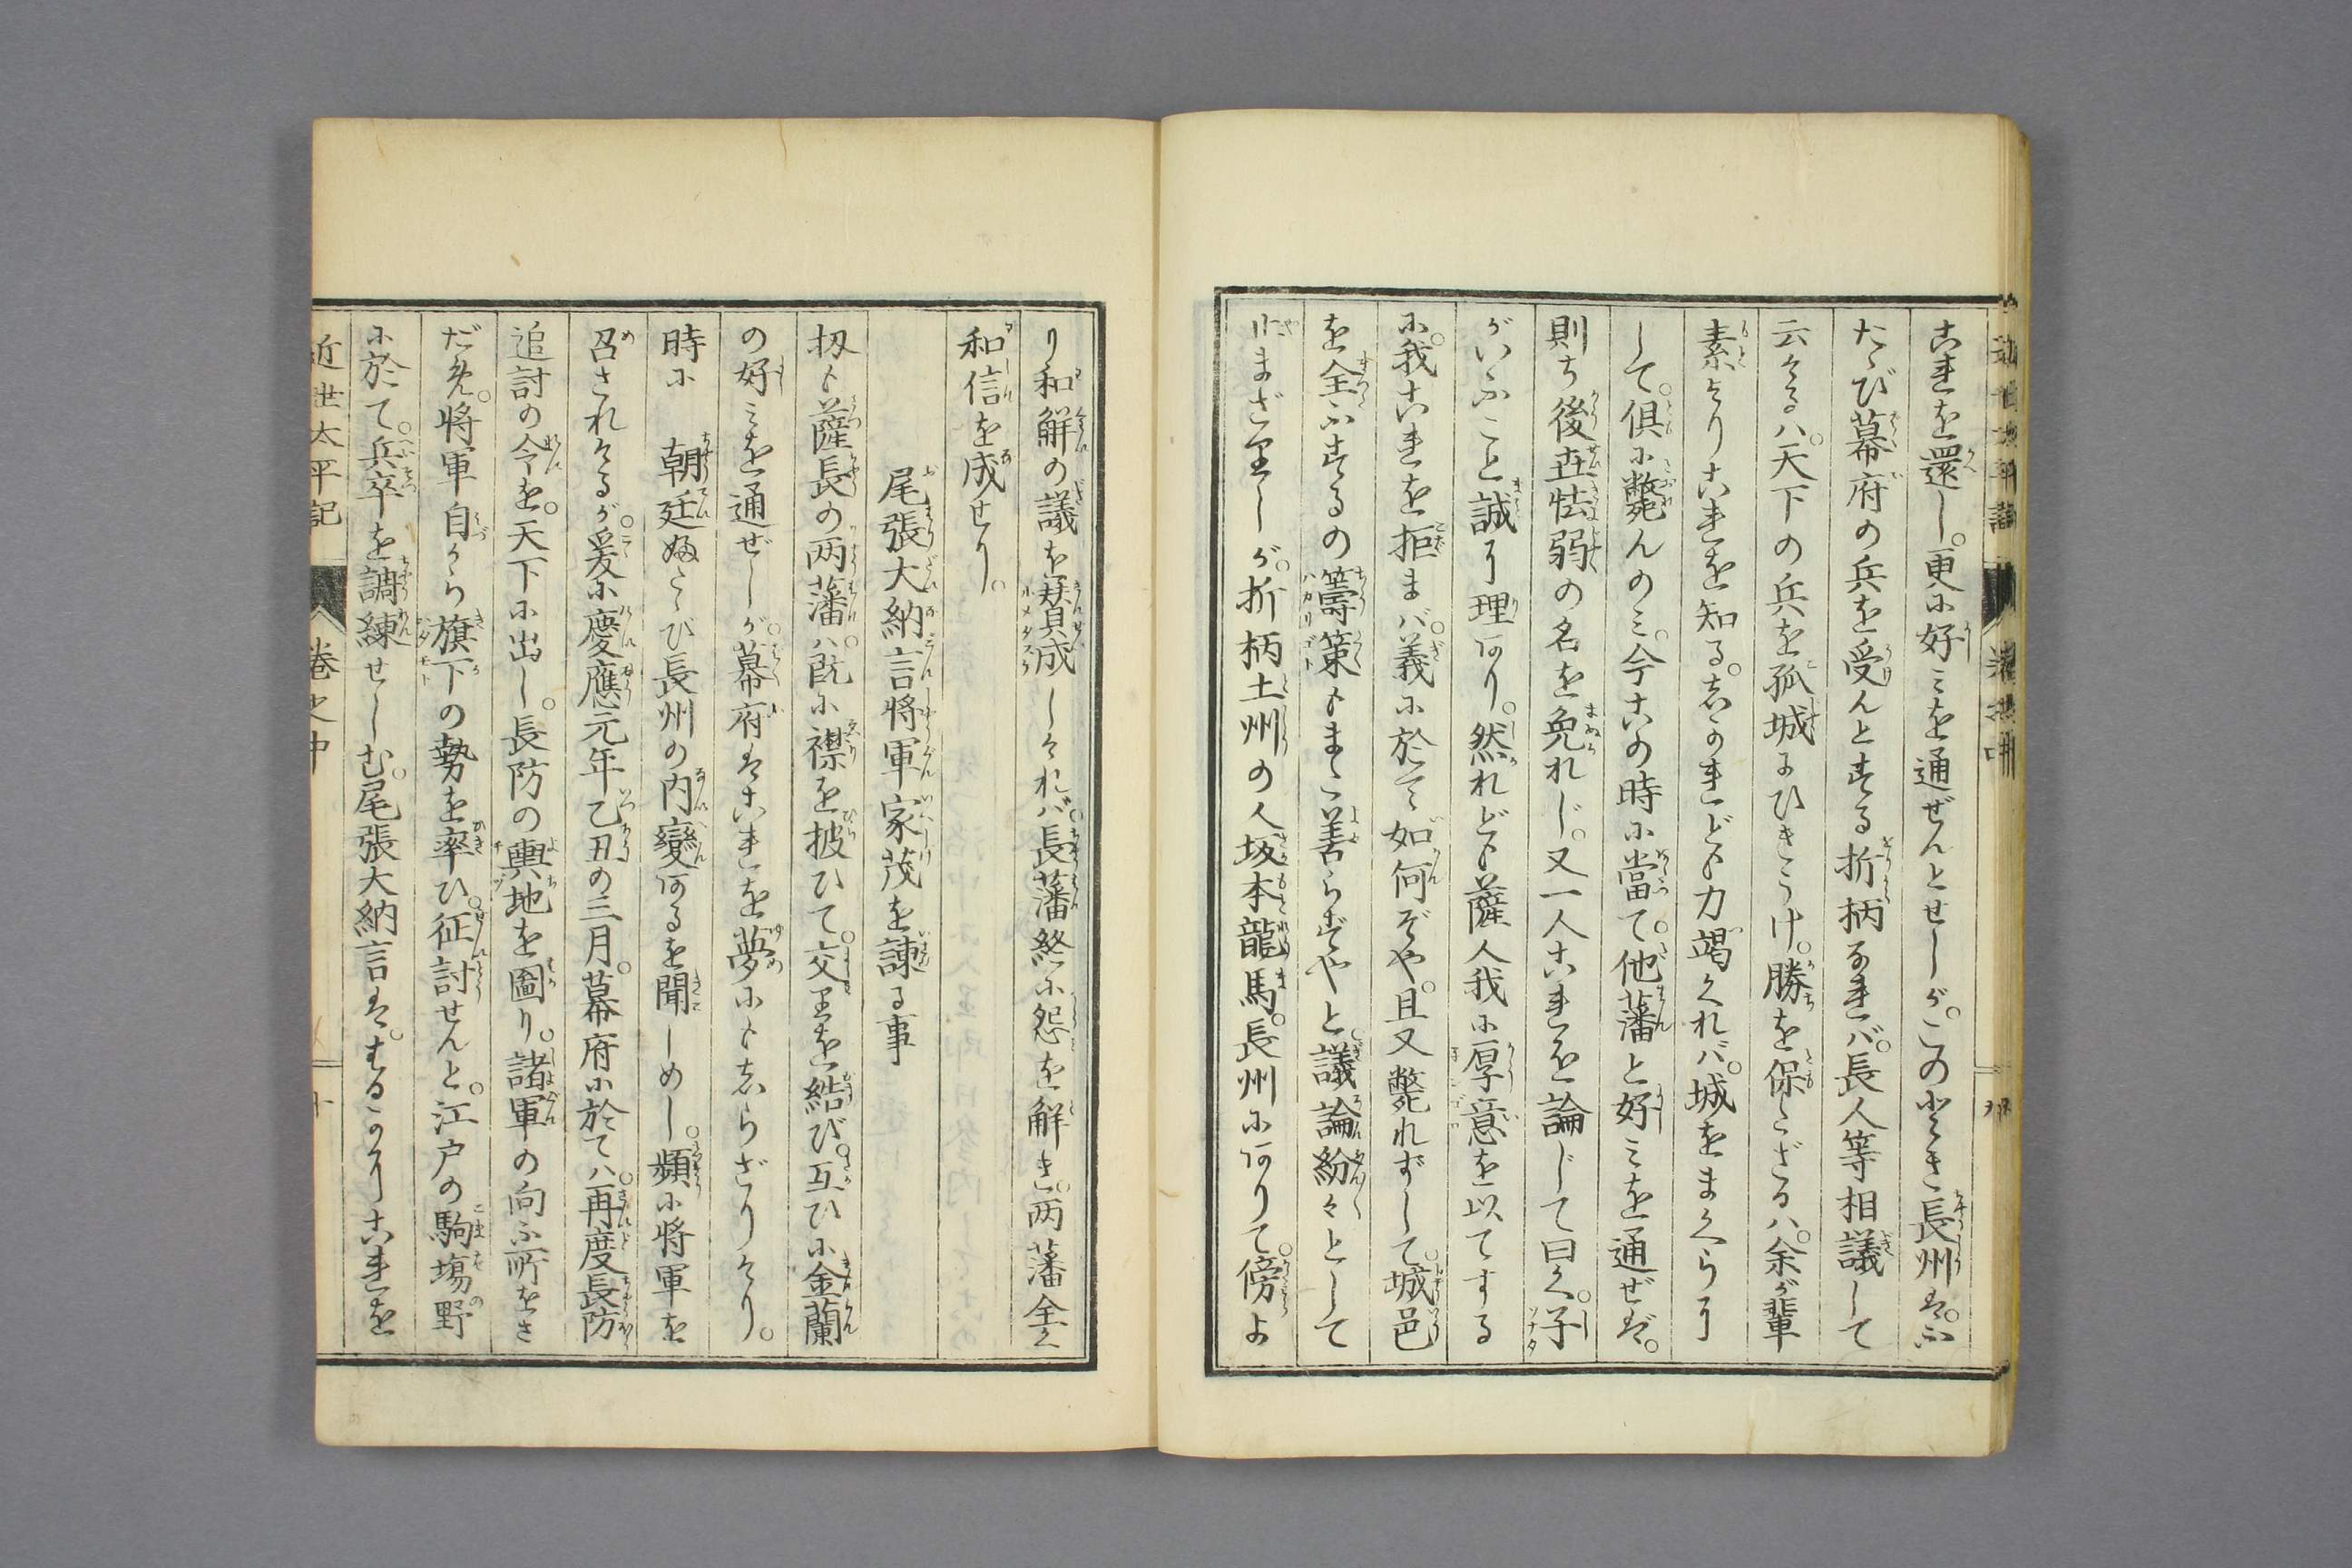 これを還し。更に好みを通ぜんとせしが。このとき長州は。ふ
たゝび幕府の兵を受んとする折柄なれバ。長人等相議して
云けるハ。天下の兵を孤城にひきうけ。勝を保たざるハ。余が輩
素よりこれを知る。しかれども力竭くれバ。城をまくらに
して。俱に斃んのミ。今この時に當て。他藩と好ミを通ぜば。
則ち後世怯弱の名を免れじ。又一人これを論じて曰く。子
がいふこと誠に理あり。然れども薩人我に厚意を以てする
に。我これを拒まバ。義に於て如何ぞや。且又斃れずして。城邑
を全ふするの籌策もまた善らずやと。議論紛々として
止まざりしが。折柄土州の人坂本龍馬。長州にありて。傍よ
り和解の議を賛成しけれバ。長藩終に怨を解き。両藩全く
和信を成せり。
尾張大納言将軍家茂を諫る事
扨も薩長の両藩ハ。既に襟を披ひて。交りを結び。互ひに金蘭
の好ミを通ぜしが。幕府はこれを夢にもしらざりけり。
時に　朝廷ふたゝび長州の内變あるを聞しめし。頻に将軍を
召されけるが。爰に慶應元年乙丑の三月。幕府に於てハ。再度長防
追討の令を。天下に出し。長防の輿地を圖り。諸軍の向ふ所をさ
だめ。将軍自から旗下の勢を率ひ。征討せんと。江戸の駒場野
に於て。兵卒を調練せしむ。尾張大納言は。はるかにこれを
近世太平記
巻之中
十